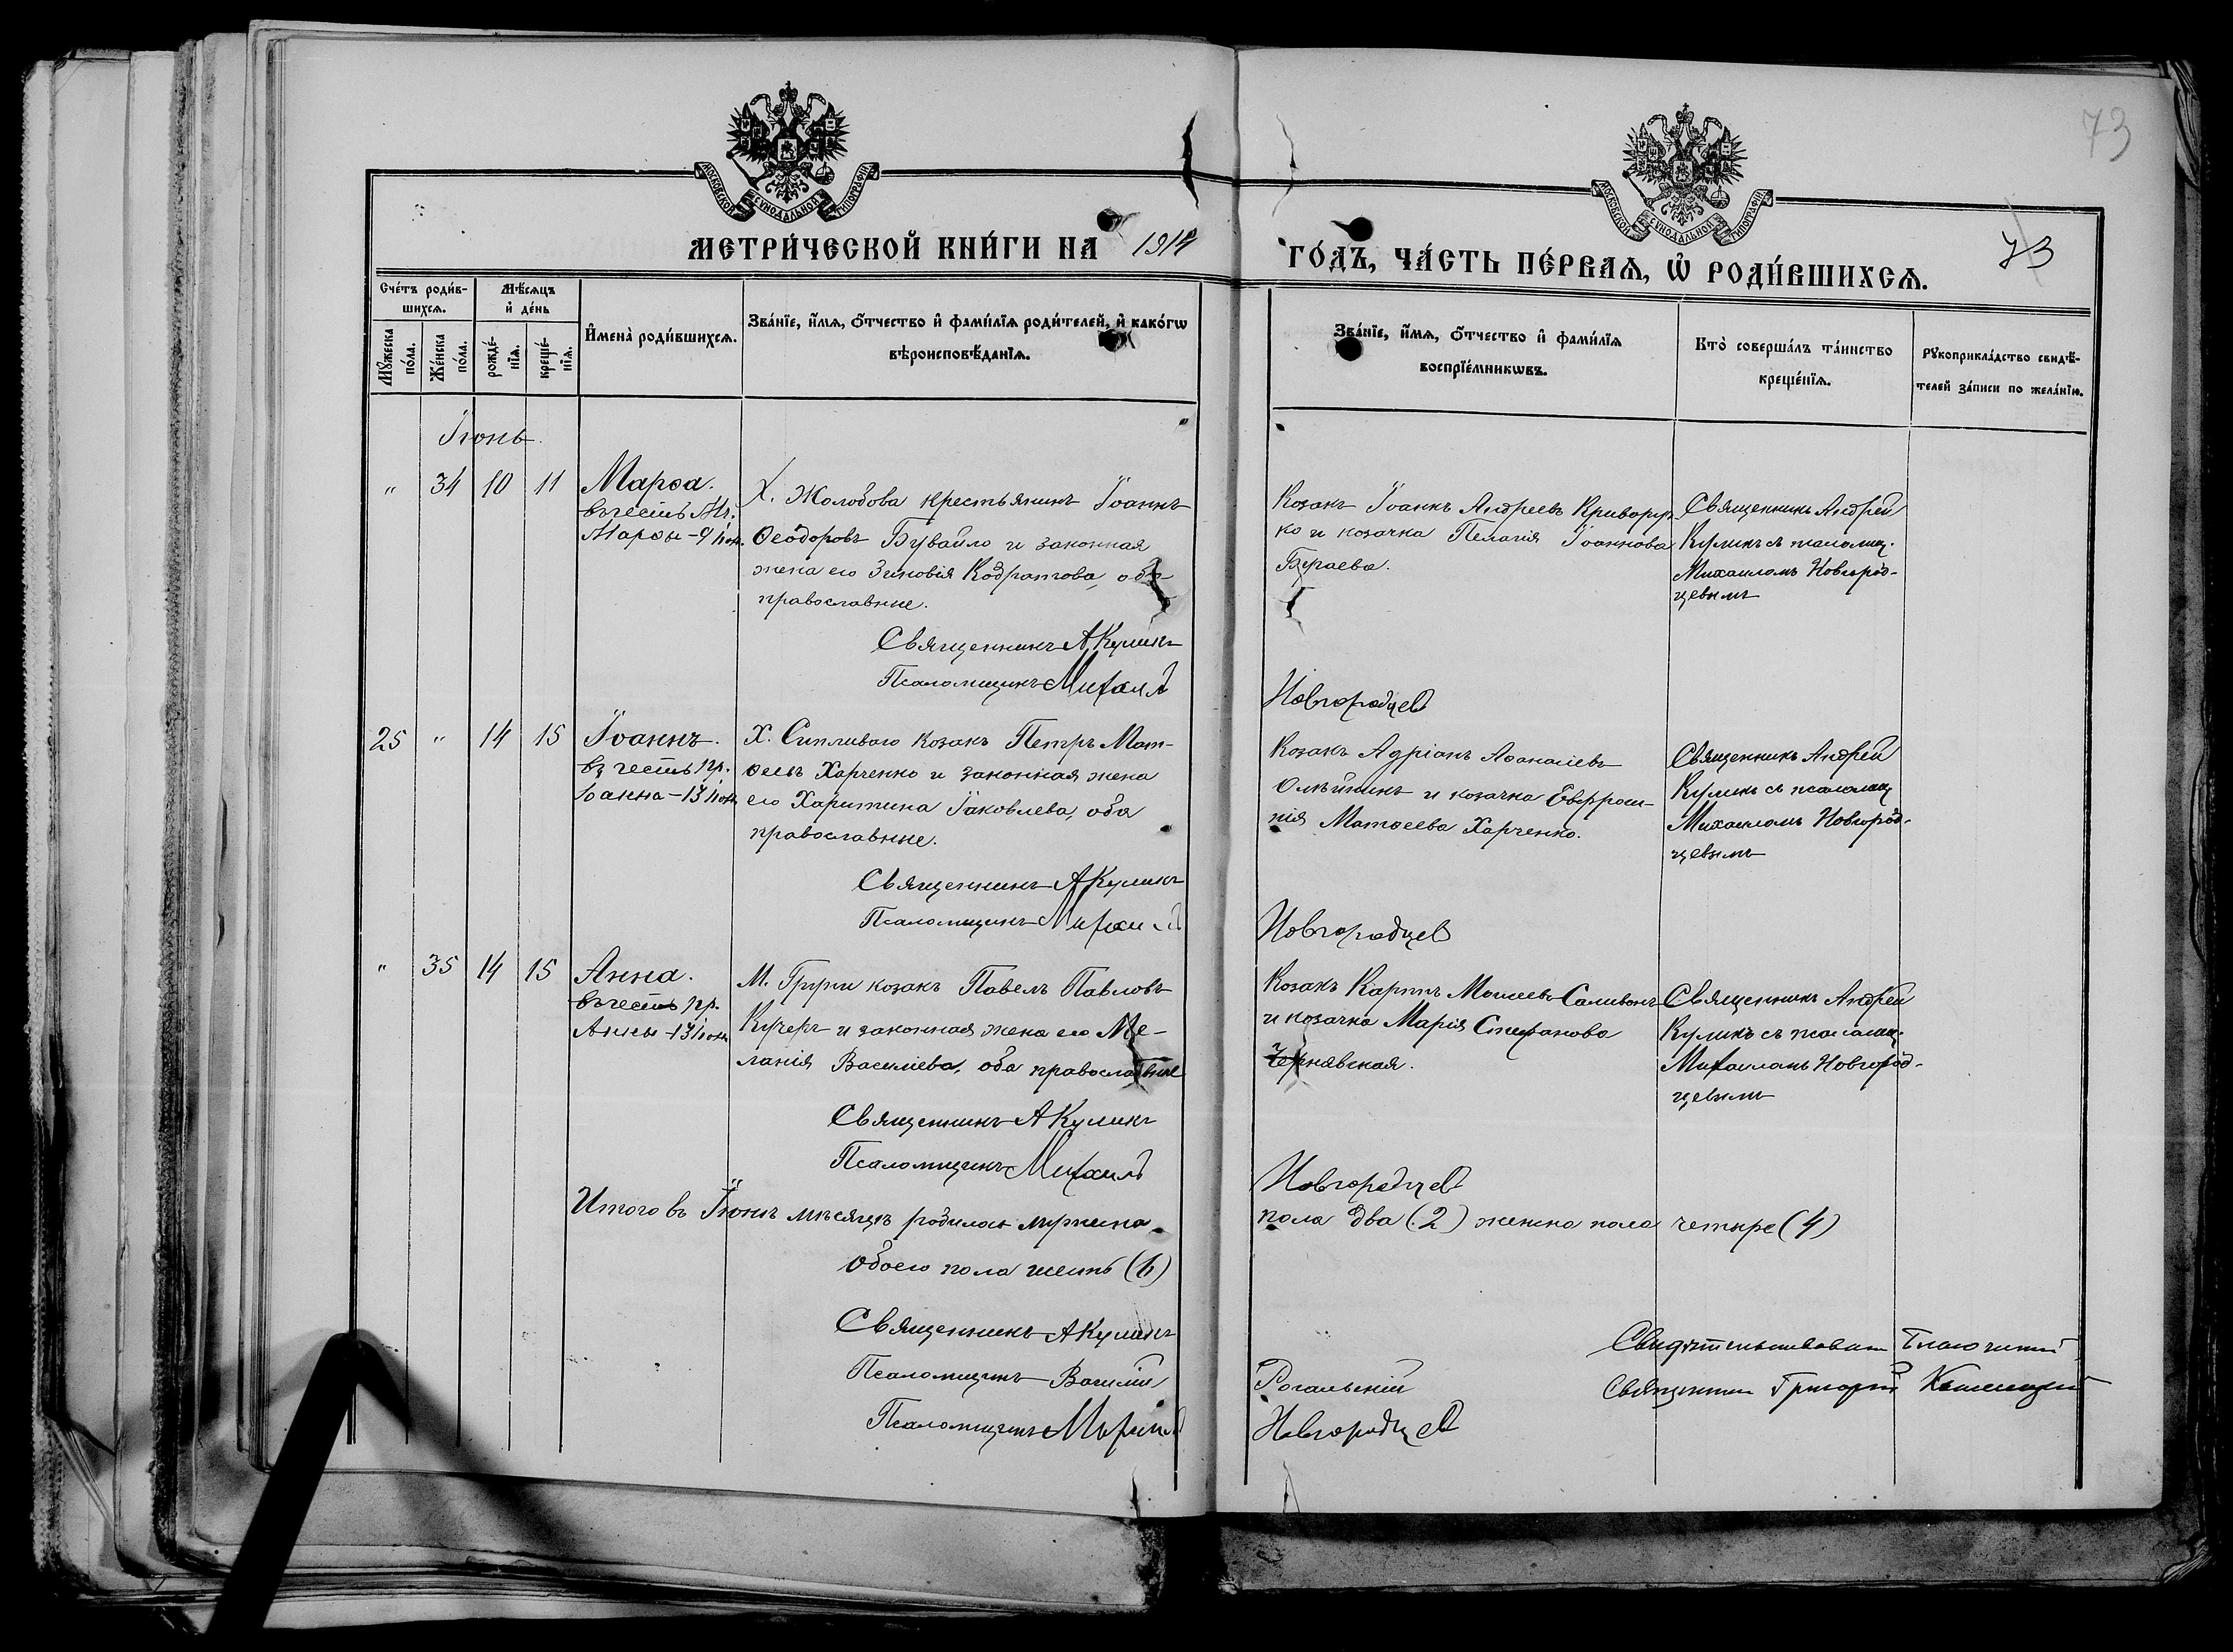 73
МОСКОВСКОЙ СѴНОДАЛЬНОЙ ТИПОГРАФІИ
МОСКОВСКОЙ СѴНОДАЛЬНОЙ ТИПОГРАФІИ
МЕТРИ́ЧЕСКОЙ КНИ́ГИ НА 1914 ГО́ДЪ, ЧА́СТЬ ПЕ́РВАѦ, Ѡ҆ РОДИ́ВШИХСѦ.
73
Сче́тъ роди́в-
шихсѧ.
Мѣ́сѧцъ
и҆ де́нь
Мꙋ́жеска
по́ла.
Же́нска
по́ла.
рожде́-
нїѧ.
креще́-
нїѧ.
И҆мена̀ роди́вшихсѧ.
Зва́нїе, и҆́мѧ, ѻ҆́тчество и҆ фами́лїѧ роди́телей, и҆ како́гѡ
вѣроисповѣ́данїѧ.
Зва́нїе, и҆́мѧ, ѻ҆́тчество и҆ фами́лїѧ
воспрїе́мникѡвъ.
Кто̀ соверша́лъ та́инство
креще́нїѧ.
Рꙋкоприкла́дство свидѣ́-
телей за́писи по жела́нїю.
Іюнь.
" 34 10 11
Марѳа.
въ честь Мч.
Марѳы - 9 Іюн.
Х. Жолобова крестьянинъ Іоаннъ
Ѳеодоровъ Бувайло и законная
жена его Зиновія Кодратова, оба
православные.
Священникъ А Куликъ
Псаломщикъ Михаилъ Новгородцев
Козакъ Іоаннъ Андреевъ
ко и козачка Пелагія Іоаннова
Священникъ Андрей
Куликъ съ псаломщ.
Михаиломъ Новгород-
цевымъ
25 " 14 15
Іоаннъ.
въ честь пр.
Іоанна - 13 Іюн.
Х. Сипливаго козакъ Петръ Мат-
ѳеевъ Харченко и законная жена
его Харитина Іаковлева, оба
православные.
Священникъ А Куликъ
Псаломщикъ Михаилъ Новгородцев
Козакъ Адріанъ Аѳанасіевъ
Олѣйникъ и козачка Евфроси-
нія Матѳеева Харченко.
Священникъ Андрей
Куликъ съ псаломщ
Михаиломъ Новгород-
цевымъ
" 35 14 15
Анна.
въ честь пр.
Анны - 13 Іюн.
М. Груни козакъ Павелъ Павловъ
Кучеръ и законная жена его Ме-
ланія Василіева, оба православные
Священникъ А Куликъ
Псаломщикъ Михаилъ Новгородцев
Козакъ Карпъ Моисеевъ Саливонъ
и козачка Марія Стефанова
Чернявская.
Священникъ Андрей
Куликъ съ псаломщ.
Михаиломъ Новгород-
цевымъ
Итого въ Іюнѣ мѣсяцѣ родилось мужеска пола два (2) женска пола четыре (4)
обоего пола шесть (6)
Священникъ А Куликъ
Псаломщикъ Василій Рогальскій
Псаломщикъ Михаилъ Новгородцев
Свидѣтельствовалъ Благочинный
Священникъ Григорій